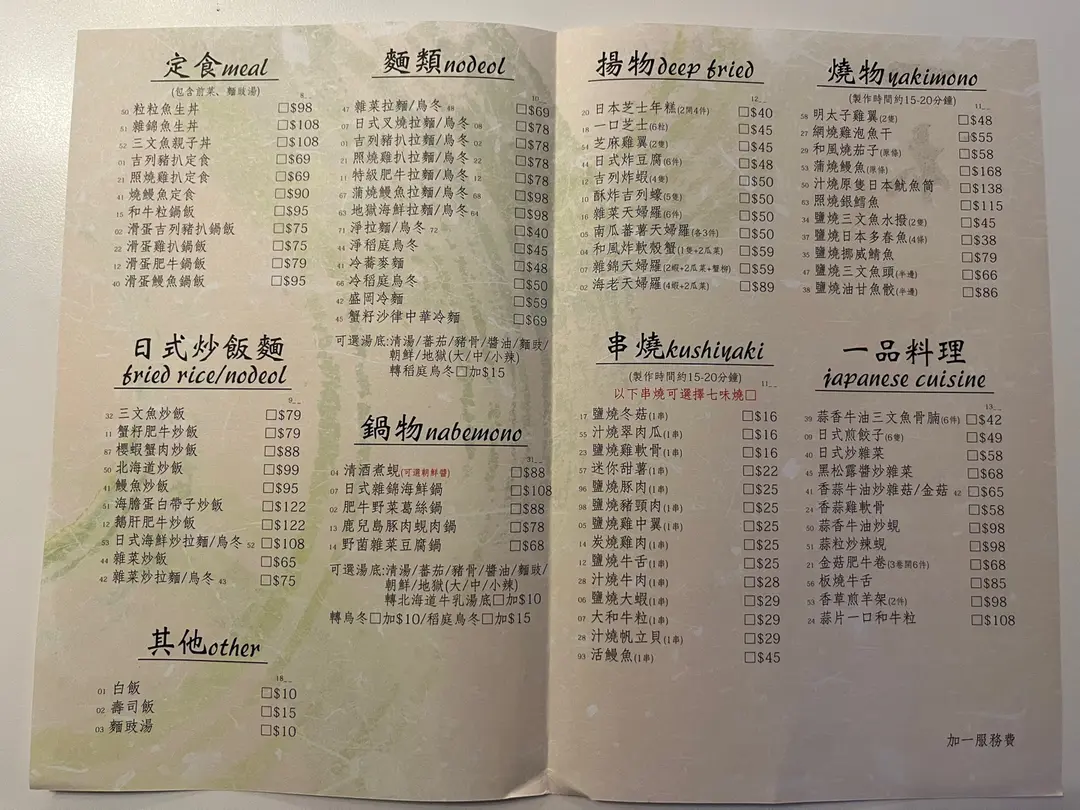 定食meal
(包含前菜、麵豉湯)
8__
50 粒粒魚生丼 □$98
51 雜錦魚生丼 □$108
52 三文魚親子丼 □$108
01 吉列豬扒定食 □$69
21 照燒雞扒定食 □$69
41 燒鰻魚定食 □$90
15 和牛粒鍋飯 □$95
02 滑蛋吉列豬扒鍋飯 □$75
22 滑蛋雞扒鍋飯 □$75
12 滑蛋肥牛鍋飯 □$79
40 滑蛋鰻魚鍋飯 □$95
日式炒飯麵
fried rice/nodeol
9__
32 三文魚炒飯 □$79
11 蟹籽肥牛炒飯 □$79
87 櫻蝦蟹肉炒飯 □$88
50 北海道炒飯 □$99
41 鰻魚炒飯 □$95
51 海膽蛋白帶子炒飯 □$122
12 鵝肝肥牛炒飯 □$122
53 日式海鮮炒拉麵/烏冬 52 □$108
44 雜菜炒飯 □$65
42 雜菜炒拉麵/烏冬 43 □$75
其他other
18__
01 白飯 □$10
02 壽司飯 □$15
03 麵豉湯 □$10
麵類nodeol
10__
47 雜菜拉麵/烏冬 48 □$69
07 日式叉燒拉麵/烏冬 08 □$78
01 吉列豬扒拉麵/烏冬 02 □$78
21 照燒雞扒拉麵/烏冬 22 □$78
11 特級肥牛拉麵/烏冬 12 □$78
67 蒲燒鰻魚拉麵/烏冬 68 □$98
63 地獄海鮮拉麵/烏冬 64 □$98
71 淨拉麵/烏冬 72 □$40
44 淨稻庭烏冬 □$45
41 冷蕎麥麵 □$48
66 冷稻庭烏冬 □$50
42 盛岡冷麵 □$59
45 蟹籽沙律中華冷麵 □$69
可選湯底:清湯/蕃茄/豬骨/醬油/麵豉/
朝鮮/地獄(大/中/小辣)
轉稻庭烏冬□加$15
鍋物nabemono
31__
04 清酒煮蜆(可選朝鮮醬) □$88
07 日式雜錦海鮮鍋 □$108
02 肥牛野菜葛絲鍋 □$88
13 鹿兒島豚肉蜆肉鍋 □$78
14 野菌雜菜豆腐鍋 □$68
可選湯底:清湯/蕃茄/豬骨/醬油/麵豉/
朝鮮/地獄(大/中/小辣)
轉北海道牛乳湯底□加$10
轉烏冬□加$10/稻庭烏冬□加$15
揚物deep fried
12__
20 日本芝士年糕(2開4件) □$40
18 一口芝士(6粒) □$45
54 芝麻雞翼(2隻) □$45
44 日式炸豆腐(6件) □$48
12 吉列炸蝦(4隻) □$50
10 酥炸吉列蠔(5隻) □$50
16 雜菜天婦羅(6件) □$50
05 南瓜蕃薯天婦羅(各3件) □$50
04 和風炸軟殼蟹(1隻+2瓜菜) □$59
07 雜錦天婦羅(2蝦+2瓜菜+蟹柳) □$59
02 海老天婦羅(4蝦+2瓜菜) □$89
串燒kushiyaki
(製作時間約15-20分鐘)
11__
以下串燒可選擇七味燒□
17 鹽燒冬菇(1串) □$16
55 汁燒翠肉瓜(1串) □$16
23 鹽燒雞軟骨(1串) □$16
57 迷你甜薯(1串) □$22
96 鹽燒豚肉(1串) □$25
98 鹽燒豬頸肉(1串) □$25
05 鹽燒雞中翼(1串) □$25
14 炭燒雞肉(1串) □$25
12 鹽燒牛舌(1串) □$25
28 汁燒牛肉(1串) □$28
06 鹽燒大蝦(1串) □$29
07 大和牛粒(1串) □$29
28 汁燒帆立貝(1串) □$29
93 活鰻魚(1串) □$45
燒物yakimono
(製作時間約15-20分鐘)
11__
58 明太子雞翼(2隻) □$48
27 網燒雞泡魚干 □$55
29 和風燒茄子(原條) □$58
53 蒲燒鰻魚(原條) □$168
50 汁燒原隻日本魷魚筒 □$138
63 照燒銀鱈魚 □$115
34 鹽燒三文魚水撥(2隻) □$45
37 鹽燒日本多春魚(4條) □$38
35 鹽燒挪威鯖魚 □$79
47 鹽燒三文魚頭(半邊) □$66
38 鹽燒油甘魚骹(半邊) □$86
一品料理
japanese cuisine
13__
39 蒜香牛油三文魚骨腩(6件) □$42
09 日式煎餃子(6隻) □$49
40 日式炒雜菜 □$58
45 黑松露醬炒雜菜 □$68
41 香蒜牛油炒雜菇/金菇 42 □$65
24 香蒜雞軟骨 □$58
50 蒜香牛油炒蜆 □$98
51 蒜粒炒辣蜆 □$98
21 金菇肥牛卷(3卷開6件) □$68
56 板燒牛舌 □$85
53 香草煎羊架(2件) □$98
24 蒜片一口和牛粒 □$108
加一服務費